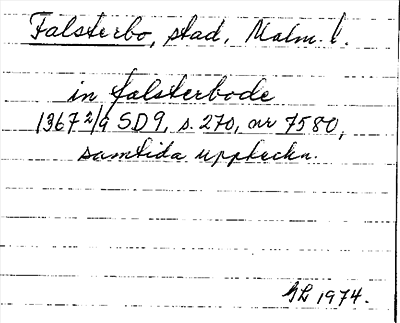 Falsterbo, stad, Malm. l.
in falsterbode
1367 2/9 SD9, s. 270, nr 7580,
samtida uppteckn.
GL 1974.